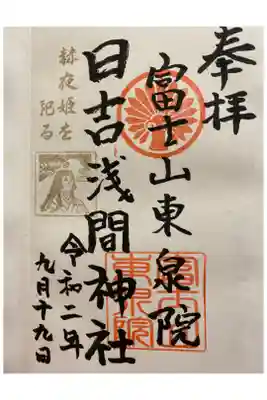 奉拝
富士山東泉院
日吉浅間神社
令和二年
九月十九日
赫夜姫を
祀る
富士山
東泉院